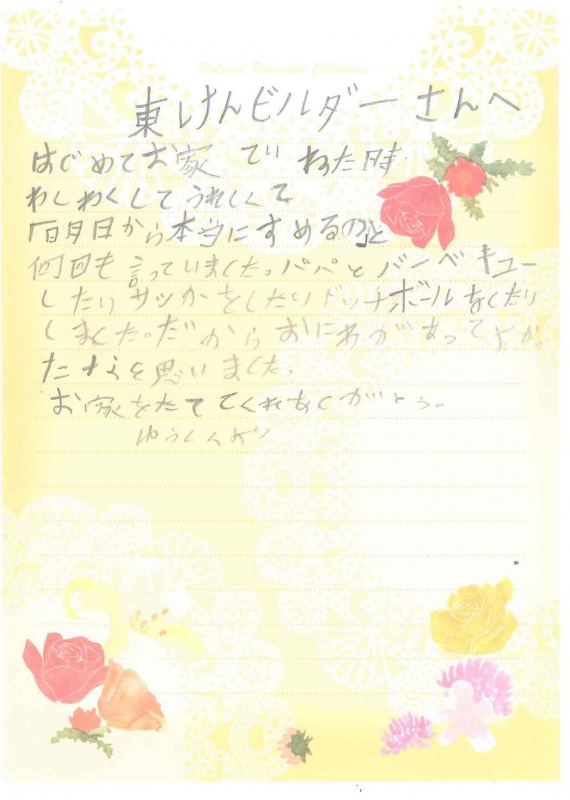 Natural Romantic Collection
東けんビルダーさんへ
はじめてお家でねた時.
わしわくしてうれしくて
「明日から本当にすめるの」と
何回も言っていました。パパとバーベキュー
したりサッカをしたりドッチボールをしたり
しました。だからおにわがあってよかっ
たなと思いました。
お家をたててくれありがとう。
ゆうくんより